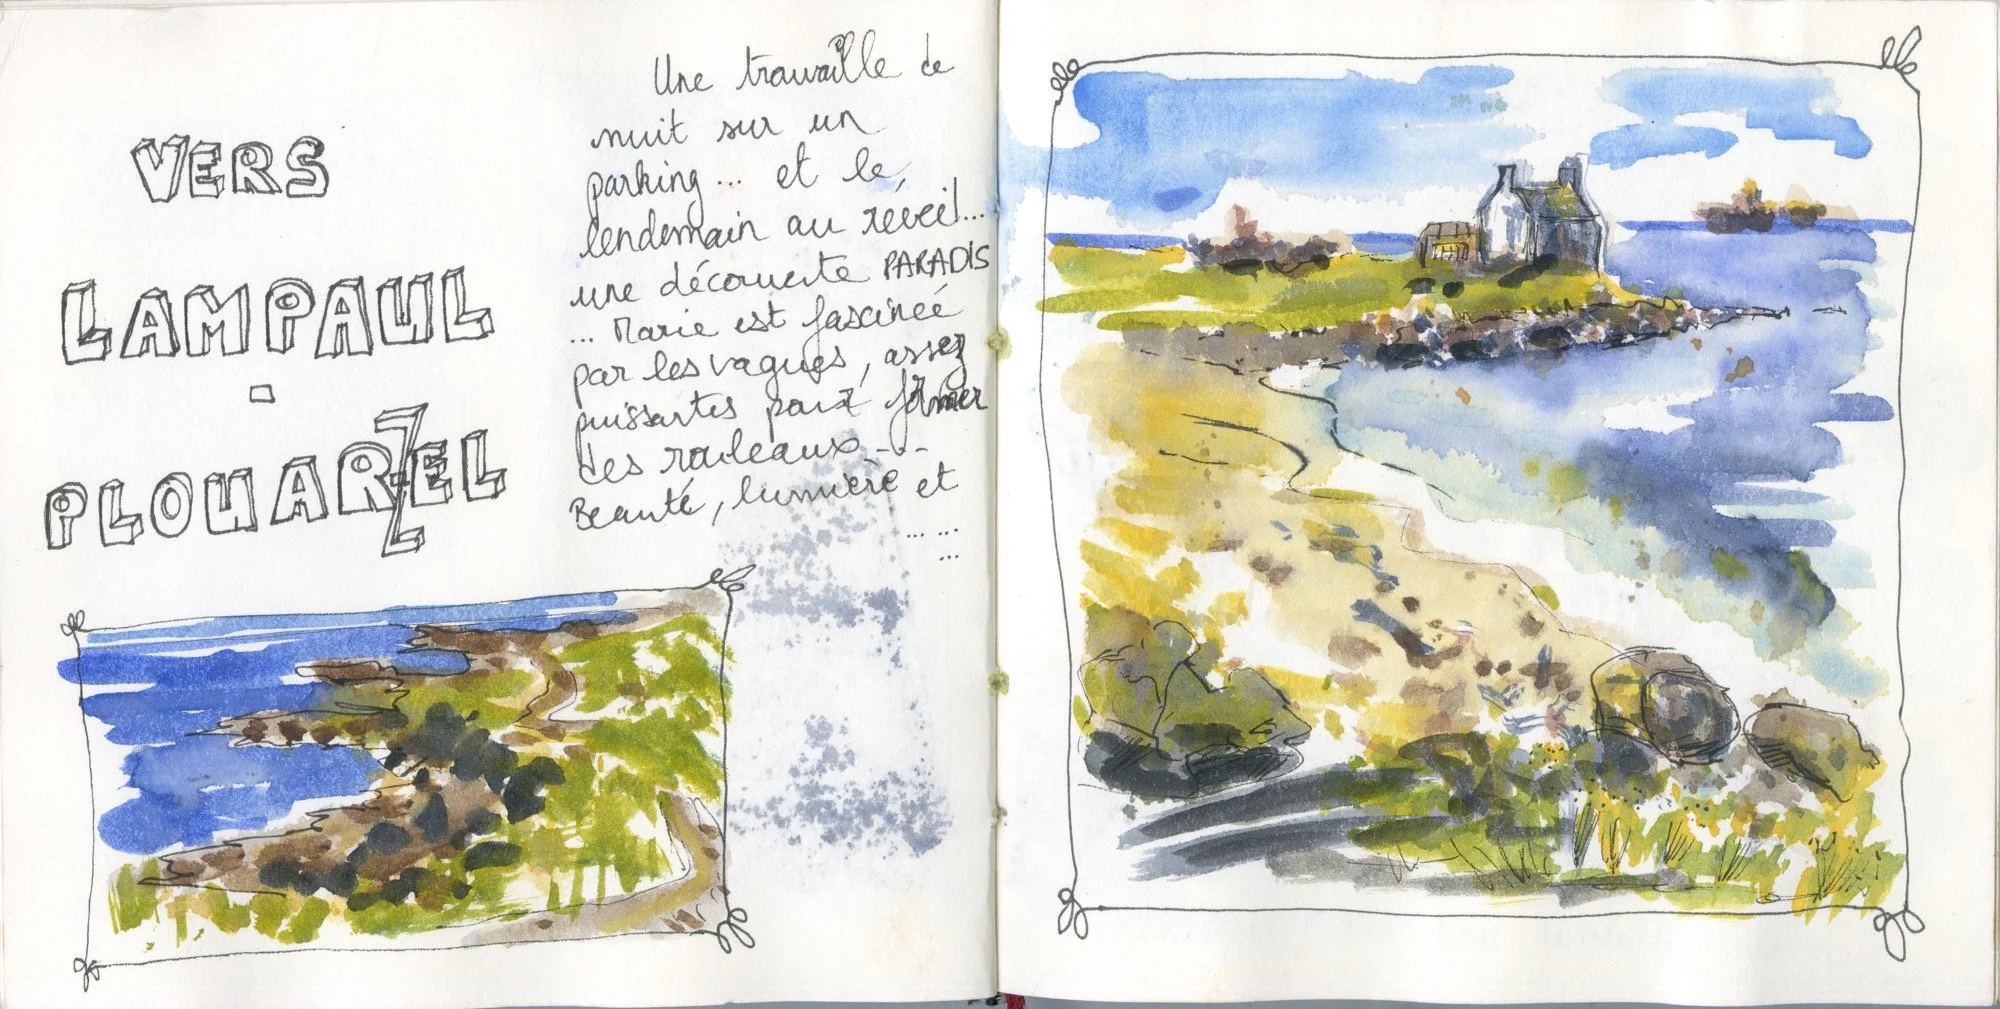 VERS
LAMPAUL
-
PLOUARZEL
Une trouvaille de
nuit sur un
parking... et le
lendemain au réveil...
une découverte PARADIS
... Marie est fascinée
par les vagues, assez
puissantes pour former
des rouleaux ---
Beauté, lumière et
... ...
...